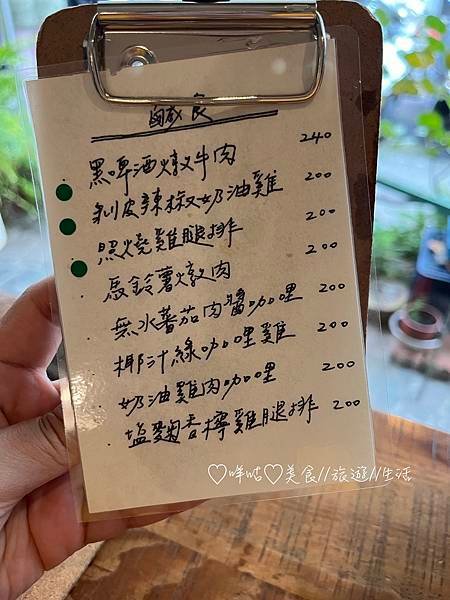 鹹食
黑啤酒燉牛肉 240
剝皮辣椒奶油雞 200
照燒雞腿排 200
馬鈴薯燉肉 200
無水蕃茄肉醬咖哩 200
椰汁綠咖哩雞 200
奶油雞肉咖哩 200
塩麴香檸雞腿排 200
♡咩咕♡美食//旅遊//生活